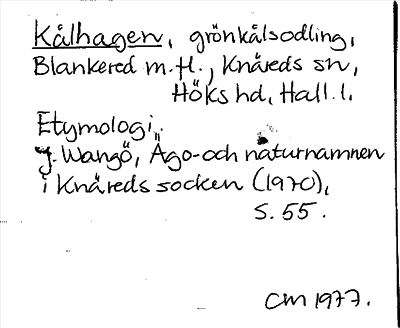 Kålhagen, grönkålsodling,
Blankered m.fl., Knäreds sn,
Höks hd, Hall. l.
Etymologi:
J. Wangö, Ägo- och naturnamnen
i Knäreds socken (1970),
s. 55.
CM 1977.